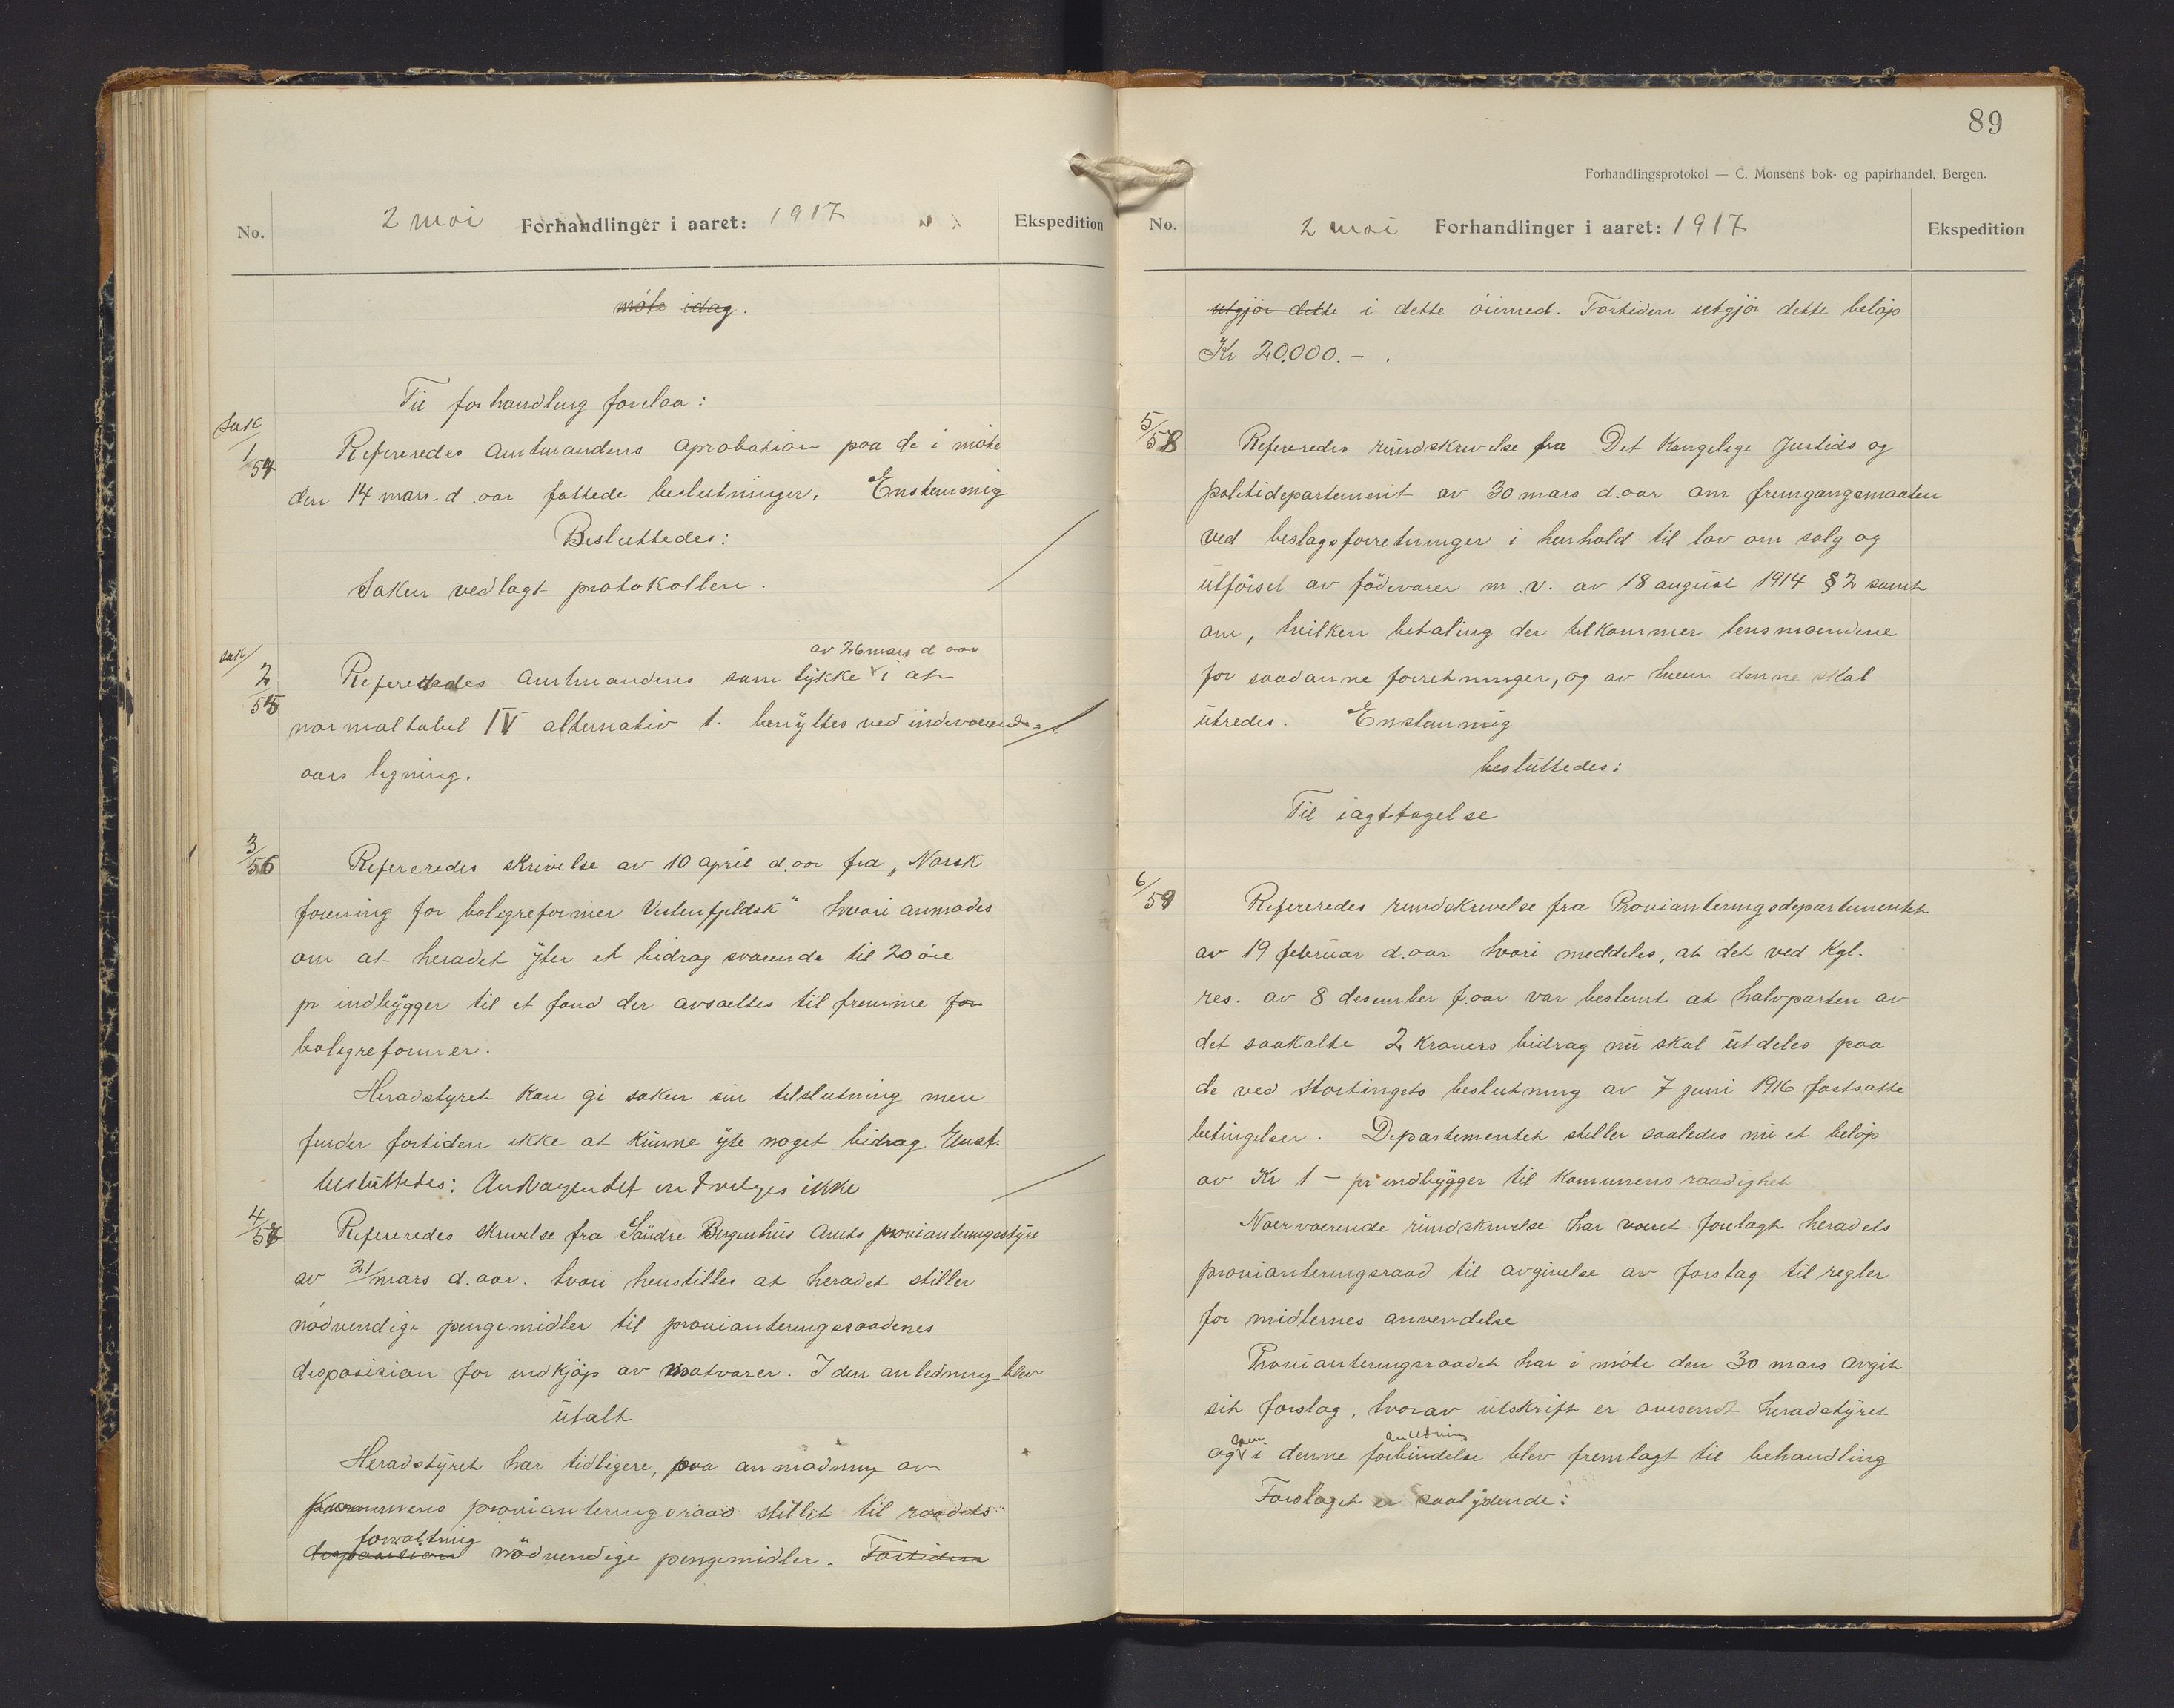 No.
2 mai Forhandlinger i aaret: 1917
Ekspedition
møte idag.
Til forhandling forelaa:
Sak
1/54
Refereredes Amtmandens aprobation paa de i møte
den 14 mars d. aar fattede beslutninger. Enstemmig
Besluttedes:
Saken vedlagt protokollen.
sak/
2/55
av 26 mars d aar
Refereredes Amtmandens samtykke i at
normaltabel IV alternativ 1. benyttes ved indværende
aars ligning.
3/56
Refereredes skrivelse av 10 april d. aar fra „Norsk
forening for boligreformer Vestenfjeldsk" hvori anmodes
om at heradet yter et bidrag svarende til 20 øre
pr indbygger til et fond der avsættes til fremme for
boligreformer.
Heradstyret kan gi saken sin tilslutning men
finder fortiden ikke at kunne yte noget bidrag Enst.
besluttedes: Andragendet indvilges ikke
4/57
Refereredes skrivelse fra Söndre Bergenhus Amts provianteringsstyre
av 21/mars d. aar. hvori henstilles at heradet stiller
nødvendige pengemidler til provianteringsraadenes
disposision for indkjøp av matvarer. I den anledning blev
utalt
Heradstyret har tidligere, paa anmodning av
kommunens provianteringsraad stillet til raadets
forvaltning
disposision nødvendige pengemidler. Fortiden
89
Forhandlingsprotokol — C. Monsens bok- og papirhandel, Bergen.
No.
2 mai Forhandlinger i aaret: 1917
Ekspedition
utgjør dette i dette øiemed. Fortiden utgjør dette beløp
Kr 20.000.- .
5/58
Refereredes rundskrivelse fra Det Kongelige Justids og
politidepartement av 30 mars d. aar om fremgangsmaaten
ved beslagsforretninger i henhold til lov om salg og
utførsel av fødevarer m.v. av 18 august 1914 § 2 samt
om, hvilken betaling der tilkommer lensmændene
for saadanne forretninger, og av hvem denne skal
utredes. Enstemmig
besluttedes:
Til iagttagelse
6/59
Refereredes rundskrivelse fra Provianteringsdepartementet
av 19 februar d. aar hvori meddeles, at det ved Kgl.
res. av 8 desember f. aar var bestemt at halvparten av
det saakalte 2 Kroners bidrag nu skal utdeles paa
de ved stortingets beslutning av 7 juni 1916 fastsatte
betingelser. Departementet stiller saaledes nu et beløp
av Kr 1 - pr indbygger til Kommunens raadighet
Nærværende rundskrivelse har været forelagt heradets
provianteringsraad til avgivelse av forslag til regler
for midlernes anvendelse
Provianteringsraadet har i møte den 30 mars avgit
sit forslag, hvorav utskrift er oversendt heradstyret
som anledning
og i denne forbindelse blev fremlagt til behandling
Forslaget er saalydende: